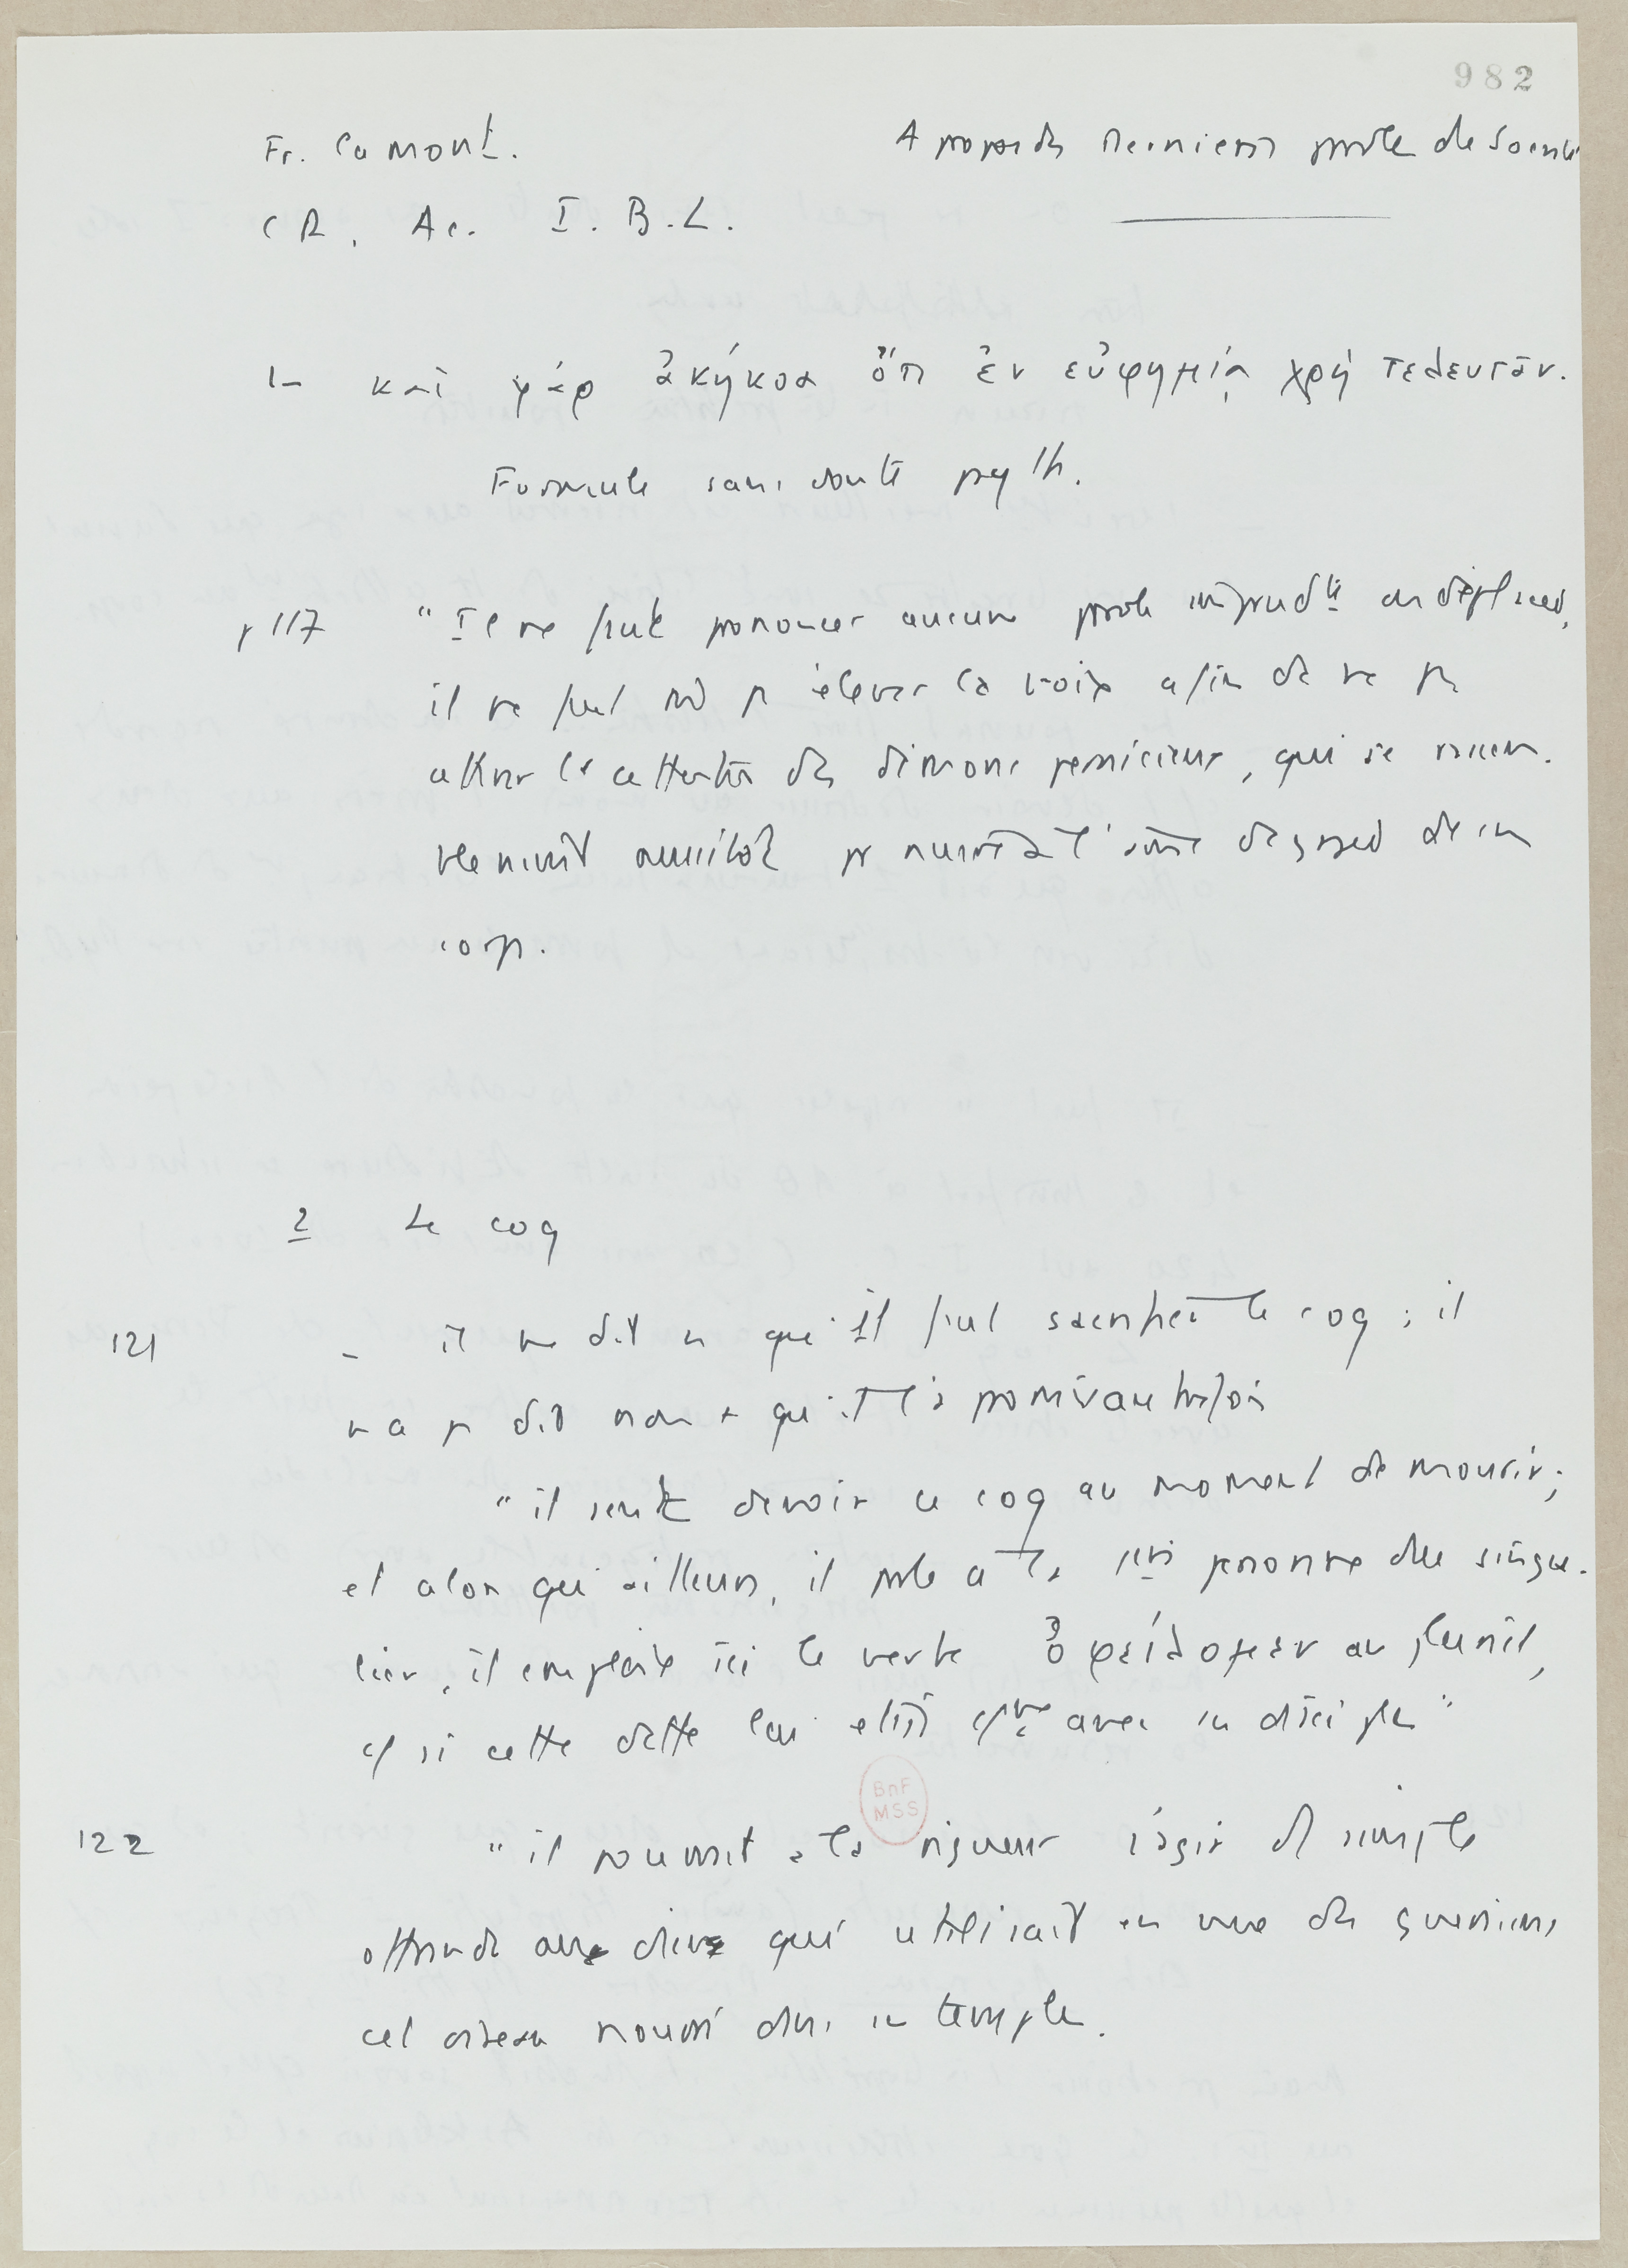 982
Fr. Cumont.
A propos des derniers parole de Socrate
CR. Ac. I. B. L.
1- καὶ γὰρ ἀκήκοα ὅτι ἐν εὐφημίᾳ χρὴ τελευτᾶν.
Formule sans doute pyth.
p 117 "Il ne faut prononcer aucune parole imprudte ou déplacée,
il ne faut pas élever la voix afin de ne pas
attirer l'attention des démons pernicieux, qui se rassem-
bleraient aussitôt pr nuire à l'âme dégagée de son
corps.
2 Le coq
121 - il ne dit pas qu'il faut sacrifier le coq ; il
n'a pas dit non + qu'il l'a promis autrefois
"il sent devoir ce coq au moment de mourir ;
et alors qu'ailleurs, il parle à la 1ère personne du singu-
lier, il emploie ici le verbe ὀφείλομεν au pluriel,
cô si cette dette lui était cne avec ses disciples"
BnF
MSS
122 "il pourrait à la rigueur s'agir d'1 simple
offrande aux dieux qui utilisait en vue des guérisons
cet oiseau nourri dans son temple.